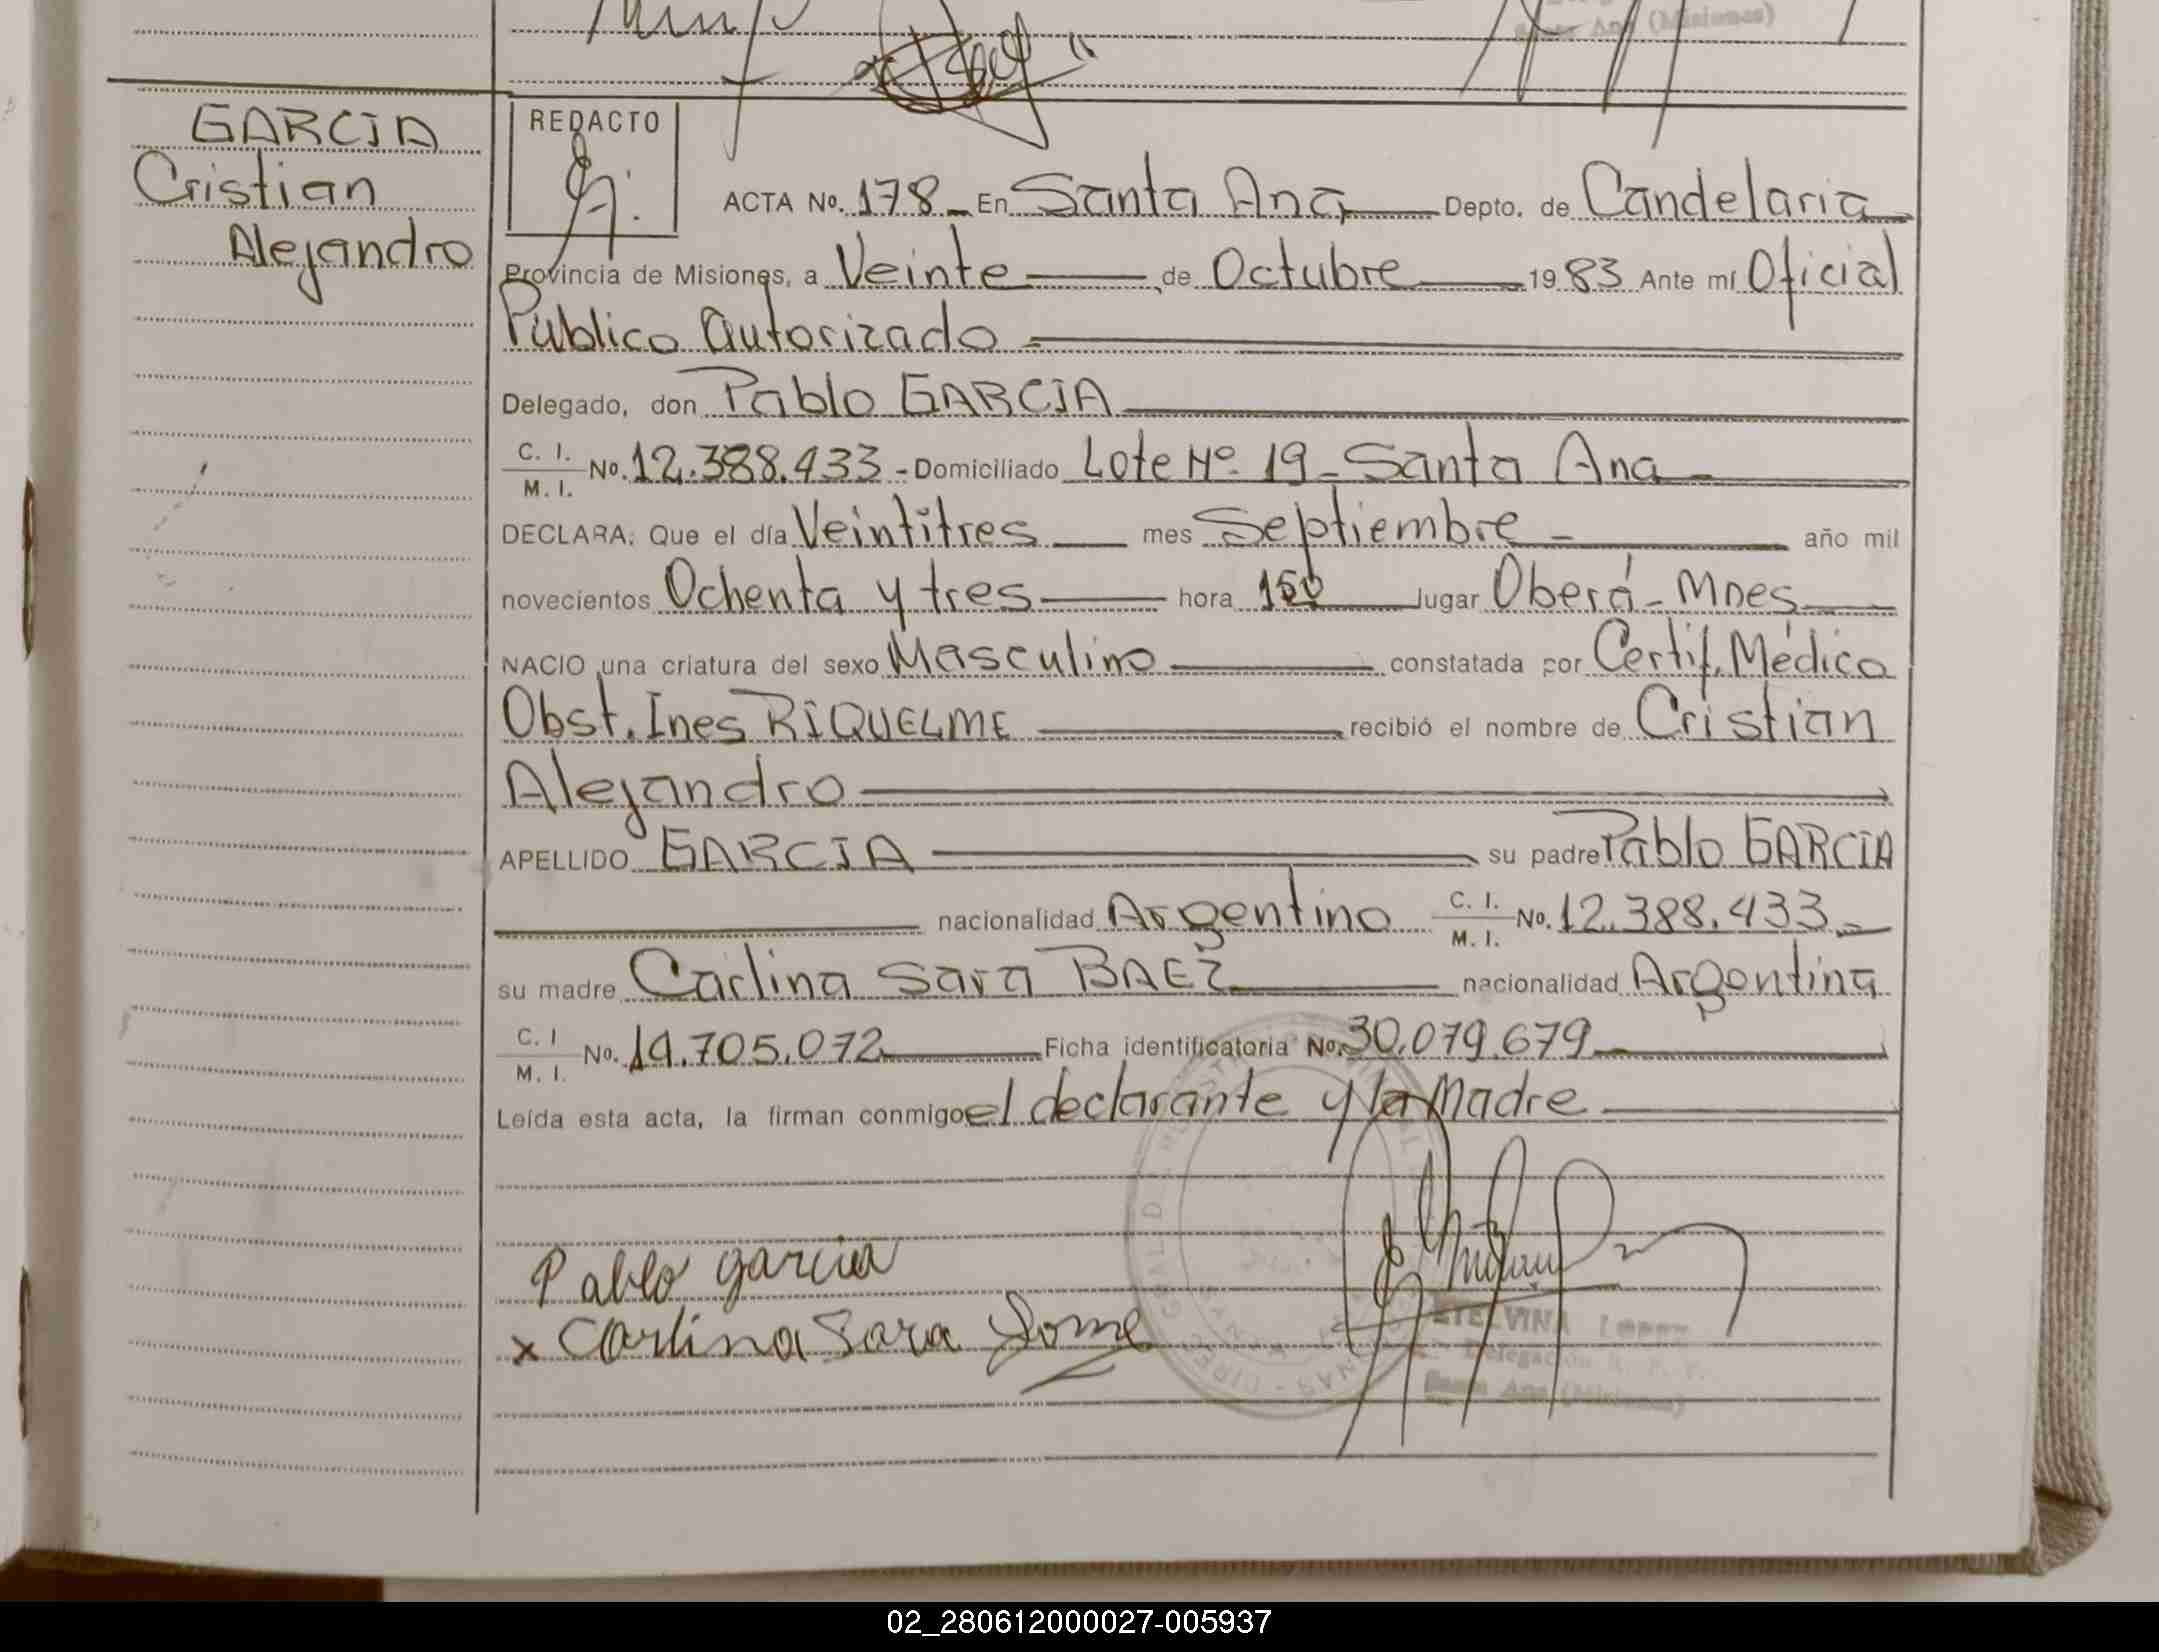 Santa Ana (Misiones)
GARCIA
Cristian
Alejandro
REDACTO
ACTA No. 178 - En Santa Ana Depto. de Candelaria
Provincia de Misiones, a Veinte de Octubre 1983 Ante mí Oficial
Público Autorizado
Delegado, don Pablo GARCIA
C. I.
M. I. No. 12.388.433 - Domiciliado Lote Nº 19 - Santa Ana -
DECLARA: Que el día Veintitres mes Septiembre - año mil
novecientos Ochenta y tres hora lugar Oberá - Mnes
NACIO una criatura del sexo Masculino constatada por Certif. Médico
Obst. Ines RIQUELME recibió el nombre de Cristian
Alejandro
APELLIDO GARCIA su padre Pablo GARCIA
nacionalidad Argentino C. I.
M. I. No. 12.388.433 -
su madre Carlina Sara BAEZ nacionalidad Argentina
C. I
M. I. No. 14.705.072 Ficha identificatoria No. 30.079.679
Leída esta acta, la firman conmigo el declarante y la Madre
Pablo garcia
x Carlina Sara
ETELVINA Lopez
Delegación R. P. P.
Santa Ana (Misiones)
02_280612000027-005937